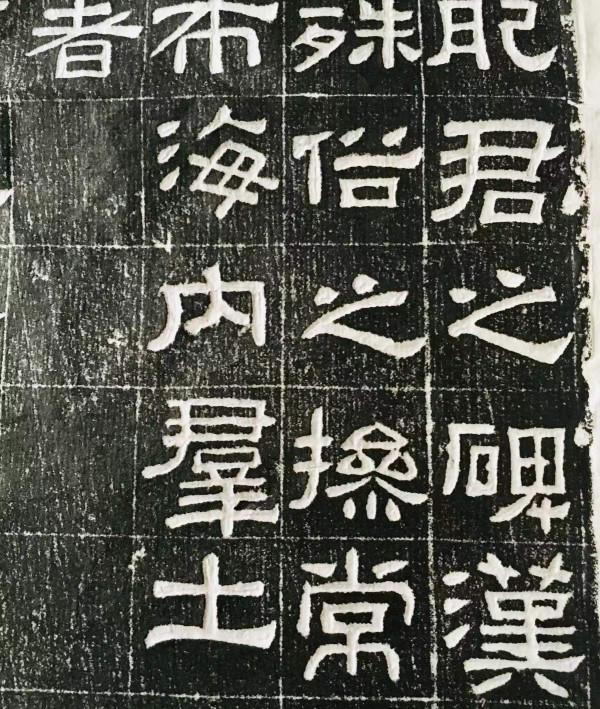 肥君之碑漢
殊俗之操常
布海內羣士
者